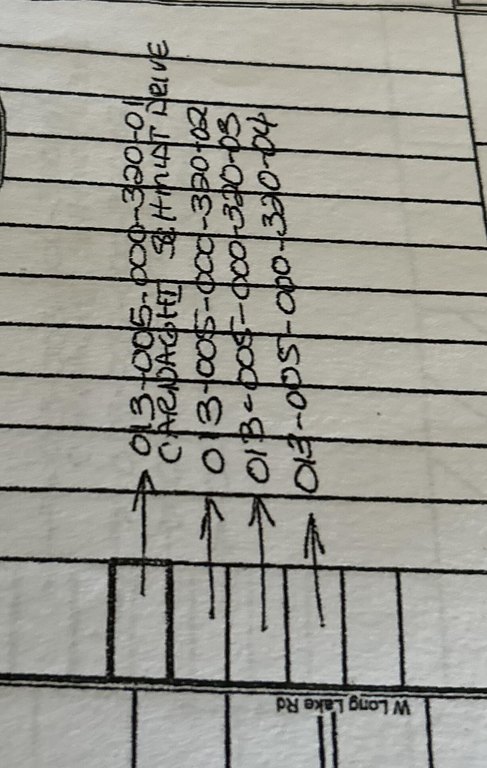 013-005-000-320-01
CARNAGHI SCHMIDT DRIVE
013-005-000-320-02
013-005-000-320-03
013-005-000-320-04
W Long Lake Rd